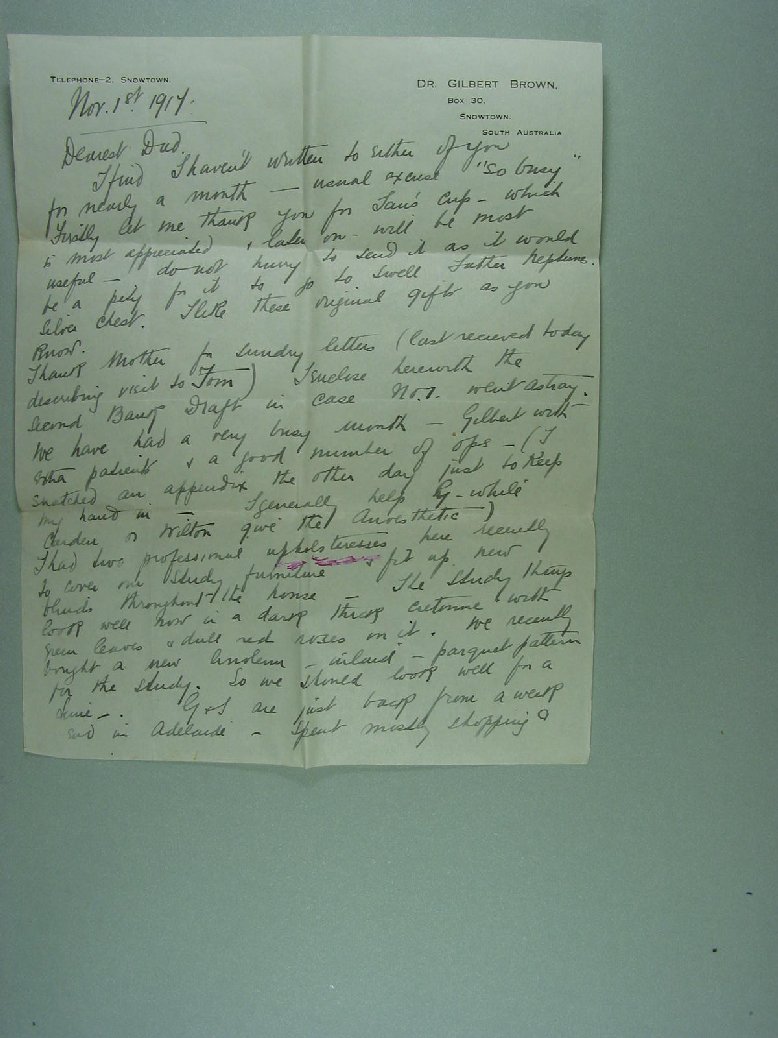 TELEPHONE-2, SNOWTOWN.
DR. GILBERT BROWN,
BOX 30,
SNOWTOWN,
SOUTH AUSTRALIA
Nov. 1st. 1917.
Dearest Dad.
I find I haven't written to either of you
for nearly a month — usual excuse "so busy"
Firstly let me thank you for Ian's cup – which
is most appreciated & later on will be most
useful – do not hurry to send it as it would
be a pity for it to go to swell Father Neptune's
silver chest. I like these original gifts as you
know.
I thank Mother for sundry letters (last recieved today
describing visit to Tom) I enclose herewith the
second Bank Draft in case No. 1. went astray.
We have had a very busy month – Gilbert with
extra patients & a good number of ops – (I
snatched an appendix the other day just to keep
my hand in — I generally help G – while
Carden or Wilton give the Anaesthetic –)
I had two professional upholsteresses here recently
to cover our study furniture & fit up new
blinds throughout the house – The study things
look well now in a dark thick cretonne with
green leaves & dull red roses on it. We recently
bought a new linoleum – inlaid – parquet pattern
for the study. So we should look well for a
time –. G & I are just back from a week
end in Adelaide – Spent mostly shopping &